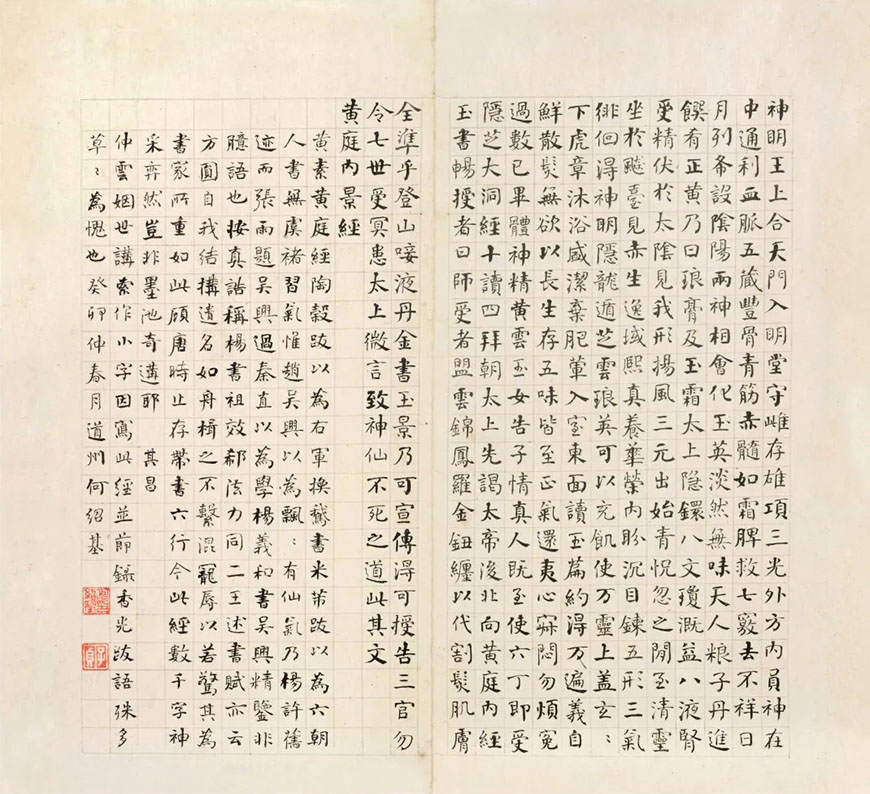 神明王上合天門入明堂守雌存雄項三光外方內員神在
中通利血脈五藏豐骨青筋赤髓如霜脾救七竅去不祥日
月列布設陰陽兩神相會化玉英淡然無味天人粮子丹進
饌肴正黃乃曰琅膏及玉霜太上隱鐶八文瓊溉益八液腎
受精伏於太陰見我形揚風三元出始青怳忽之間至清靈
坐於飈臺見赤生逸域熙真養華榮內盼沉目鍊五形三氣
徘徊得神明隱龍遁芝雲琅英可以充飢使万靈上蓋玄〻
下虎章沐浴盛潔棄肥葷入室東面讀玉篇約得万遍義自
鮮散髮無欲以長生存五味皆至正氣還夷心寂悶勿煩冤
過數已畢體神精黃雲玉女告子情真人既至使六丁即受
隱芝大洞經十讀四拜朝太上先謁太帝後北向黃庭內經
玉書暢授者曰師受者盟雲錦鳳羅金鈕纏以代割髮肌膚
全準乎登山唼液丹金書玉景乃可宣傳得可授告三官勿
令七世受冥患太上微言致神仙不死之道此其文
黃庭內景經
黃素黃庭經陶縠跋以為右軍換鵞書米芾跋以為六朝
人書無虞褚習氣惟趙吳興以為飄〻有仙氣乃楊許舊
迹而張雨題吳興過秦直以為學楊義和書吳興精鑒非
臆語也按真誥稱楊書祖效郗法力同二王述書賦亦云
方圓自我結搆遺名如舟楫之不繫混寵辱以若驚其為
書家所重如此顧唐時止存帶書六行今此經數千字神
采弈然豈非墨池奇遘耶 其昌
仲雲姻世講索作小字因寫此經並節錄香光跋語殊多
草〻為愧也癸卯仲春月道州何紹基